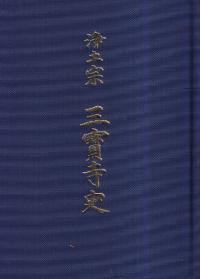 浄土宗 三寶寺史